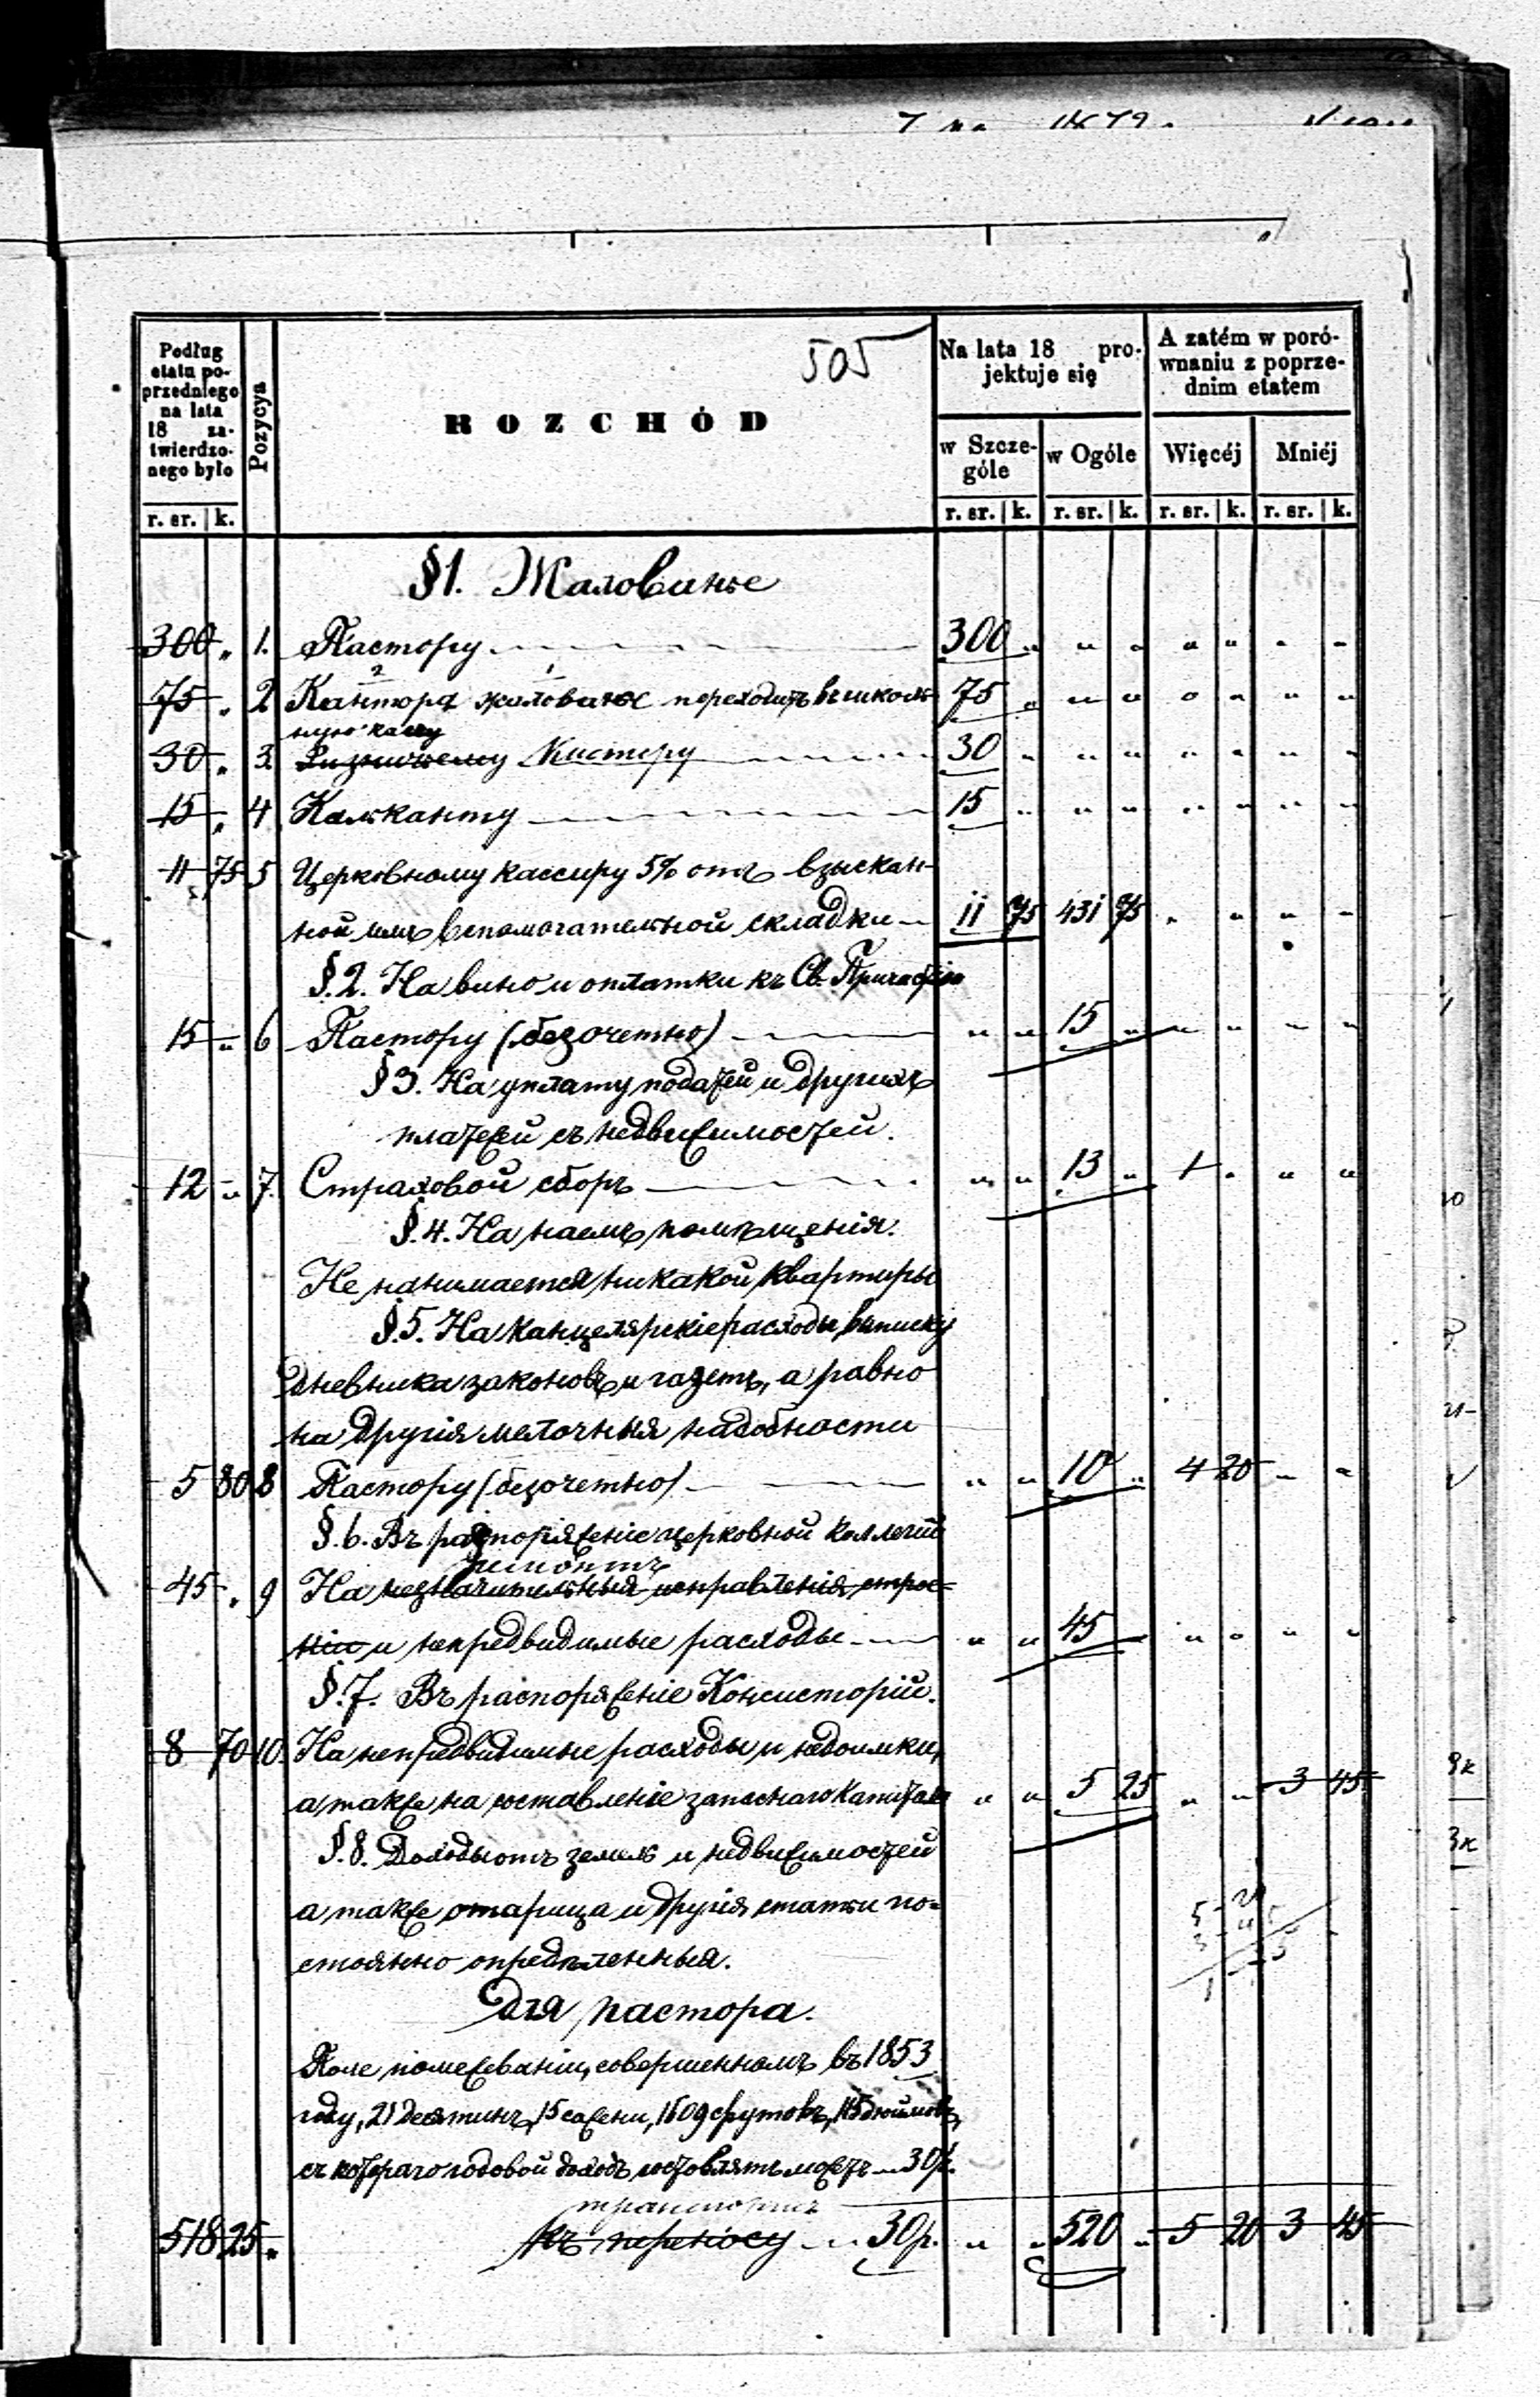 7 на 1879.
505
Podług etatu poprzedniego na lata 18 za-twierdzo-nego było
Pozycya
ROZCHÓD
Na lata 18 pro-jektuje się
A zatém w poró-wnaniu z poprze-dnim etatem
w Szcze-góle w Ogóle Więcéj Mniéj
r. sr. k. r. sr. k. r. sr. k. r. sr. k. r. sr. k.
§1. Жалованье
300 „ 1. Пастору 300 „ „ „ „ „ „ „
75 „ 2 Кантора жалованье переходитъ въ школь- 75 „ „ „ „ „ „ „
ную кассу
30 „ 3. Кистеру 30 „ „ „ „ „ „ „
15 „ 4 Кальканту 15 „ „ „ „ „ „ „
11 75 5 Церковному кассиру 5% отъ взыскан-
ной имъ вспомогательной складки 11 75 431 75 „ „ „ „
§.2. На вино и оплатки къ Св. Причастію
15 „ 6 Пастору (безочетно) „ „ 15 „ „ „ „ „
§3. На уплату податей и другихъ
платежей съ недвижимостей.
12 „ 7. Страховой сборъ „ „ 13 „ 1 „ „ „
§.4. На наемъ помѣщенія.
Не нанимается никакой квартиры
§.5. На канцелярскіе расходы, выписку
дневника законовъ и газетъ, а равно
на другія мелочныя надобности
5 80 8 Пастору (безочетно) „ „ 10 „ 4 20 „ „
§.6. Въ распоряженіе церковной коллегіи
ремонтъ
45 „ 9 На незначительныя исправленія строе-
нія и непредвидимые расходы „ „ 45 „ „ „ „
§.7. Въ распоряженіе Консисторіи.
8 70 10. На непредвидимые расходы и недоимки,
а также на составленіе запаснаго капитала „ „ 5 25 „ „ 3 45
§.8. Доходы отъ земель и недвижимостей
а также и другія статьи по-
стоянно опредѣленныя.
Для пастора.
Поле помежеваніи, совершенномъ въ 1853
году, 21 десятинъ, 15 сажени, 1609 футовъ, 115 дюймовъ,
съ котораго годовой доходъ составлять можетъ 30 р.
518 25 къ переносу 30 р. „ „ 520 „ 5 20 3 45